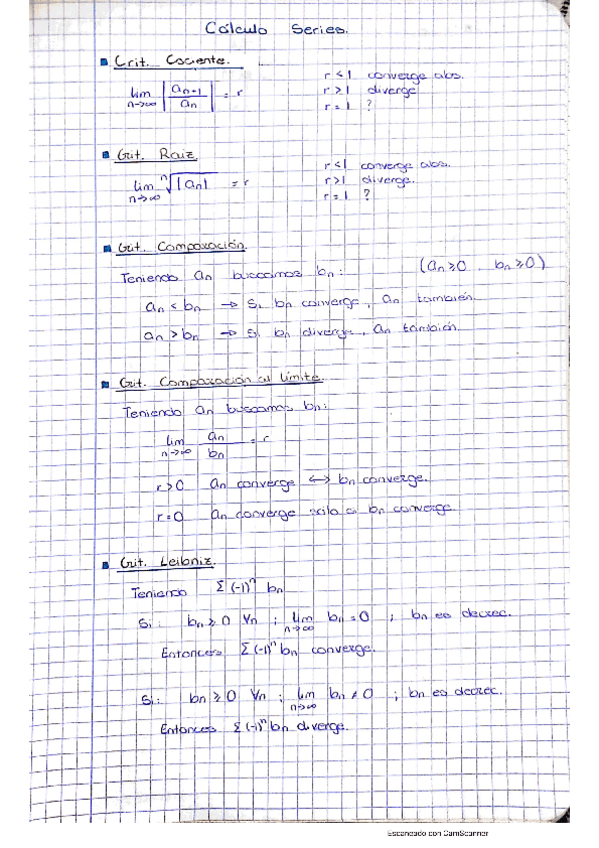 Cálculo Series.
Crit. Cociente.
lim n→∞ | an+1 / an | = r
r < 1 converge abs.
r > 1 diverge
r = 1 ?
Crit. Raiz
lim n→∞ ⁿ√|an| = r
r < 1 converge abs.
r > 1 diverge.
r = 1 ?
Crit. Comparación.
Teniendo an buscamos bn: (an ≥ 0 , bn ≥ 0)
an < bn → Si bn converge, an también.
an > bn → Si bn diverge, an también.
Crit. Comparación al límite.
Teniendo an buscamos bn:
lim n→∞ an / bn = r
r > 0 an converge ↔ bn converge.
r = 0 an converge solo si bn converge.
Crit. Leibniz.
Teniendo Σ (-1)ⁿ bn
Si: bn ≥ 0 ∀n ; lim n→∞ bn = 0 ; bn es decrec.
Entonces Σ (-1)ⁿ bn converge.
Si: bn ≥ 0 ∀n ; lim n→∞ bn ≠ 0 ; bn es decrec.
Entonces Σ (-1)ⁿ bn diverge.
Escaneado con CamScanner